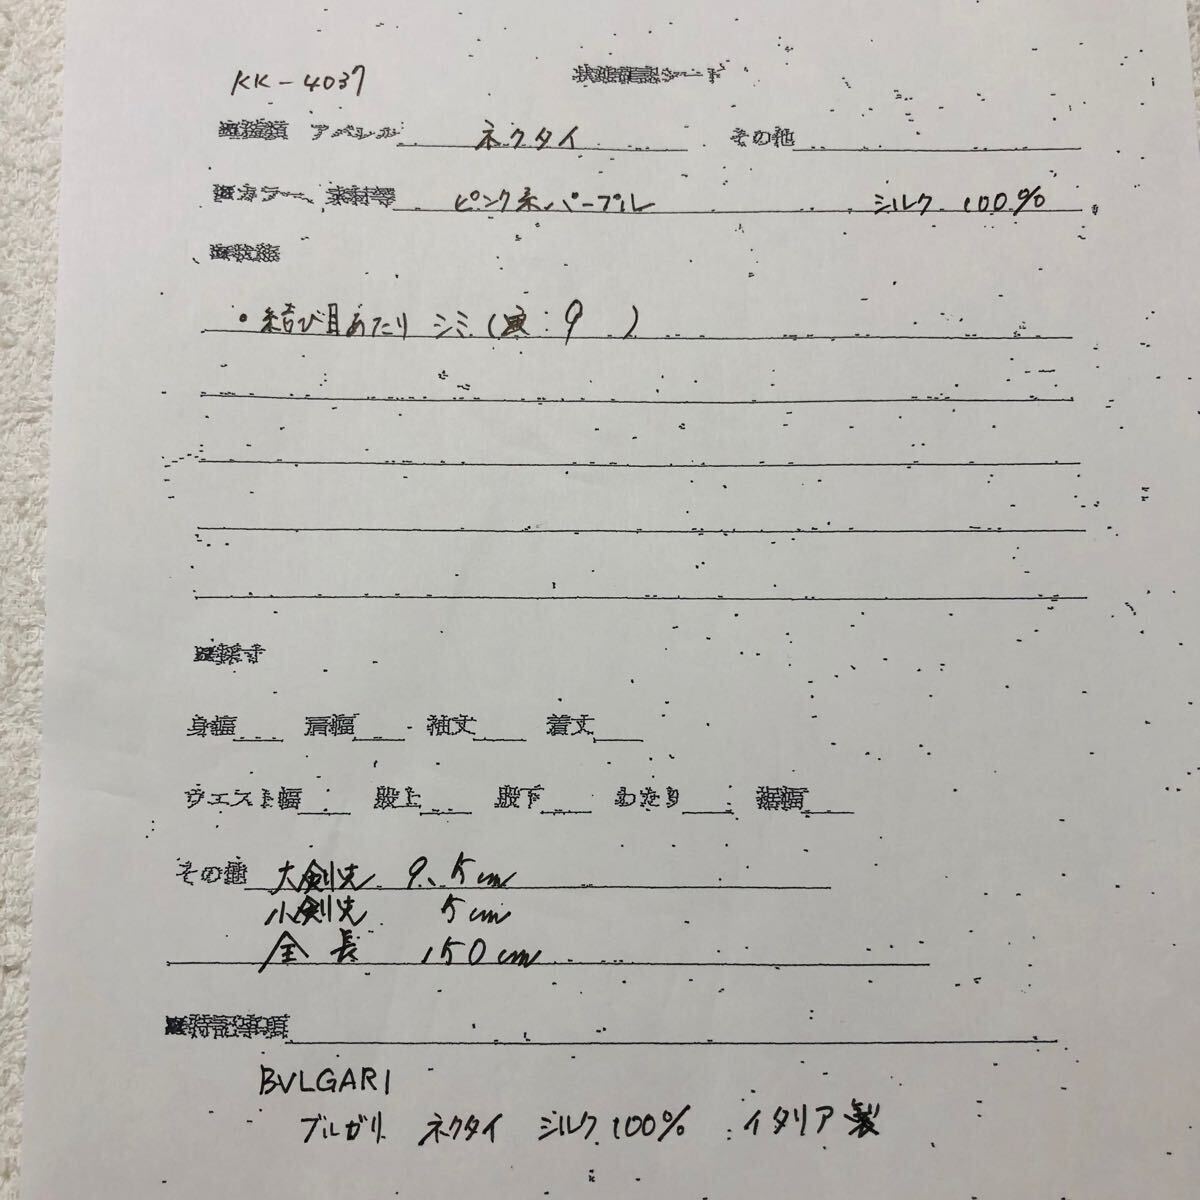 KK-4037 状態確認シート
■種類 アパレル ネクタイ その他
■カラー、素材等 ピンク系パープル シルク 100%
■状態
・結び目あたり シミ ( : 9 )
■採寸
身幅 肩幅 袖丈 着丈
ウエスト幅 股上 股下 わたり 裾幅
その他 大剣先 9.5cm
小剣先 5cm
全長 150cm
■特記事項
BVLGARI
ブルガリ ネクタイ シルク 100% イタリア製